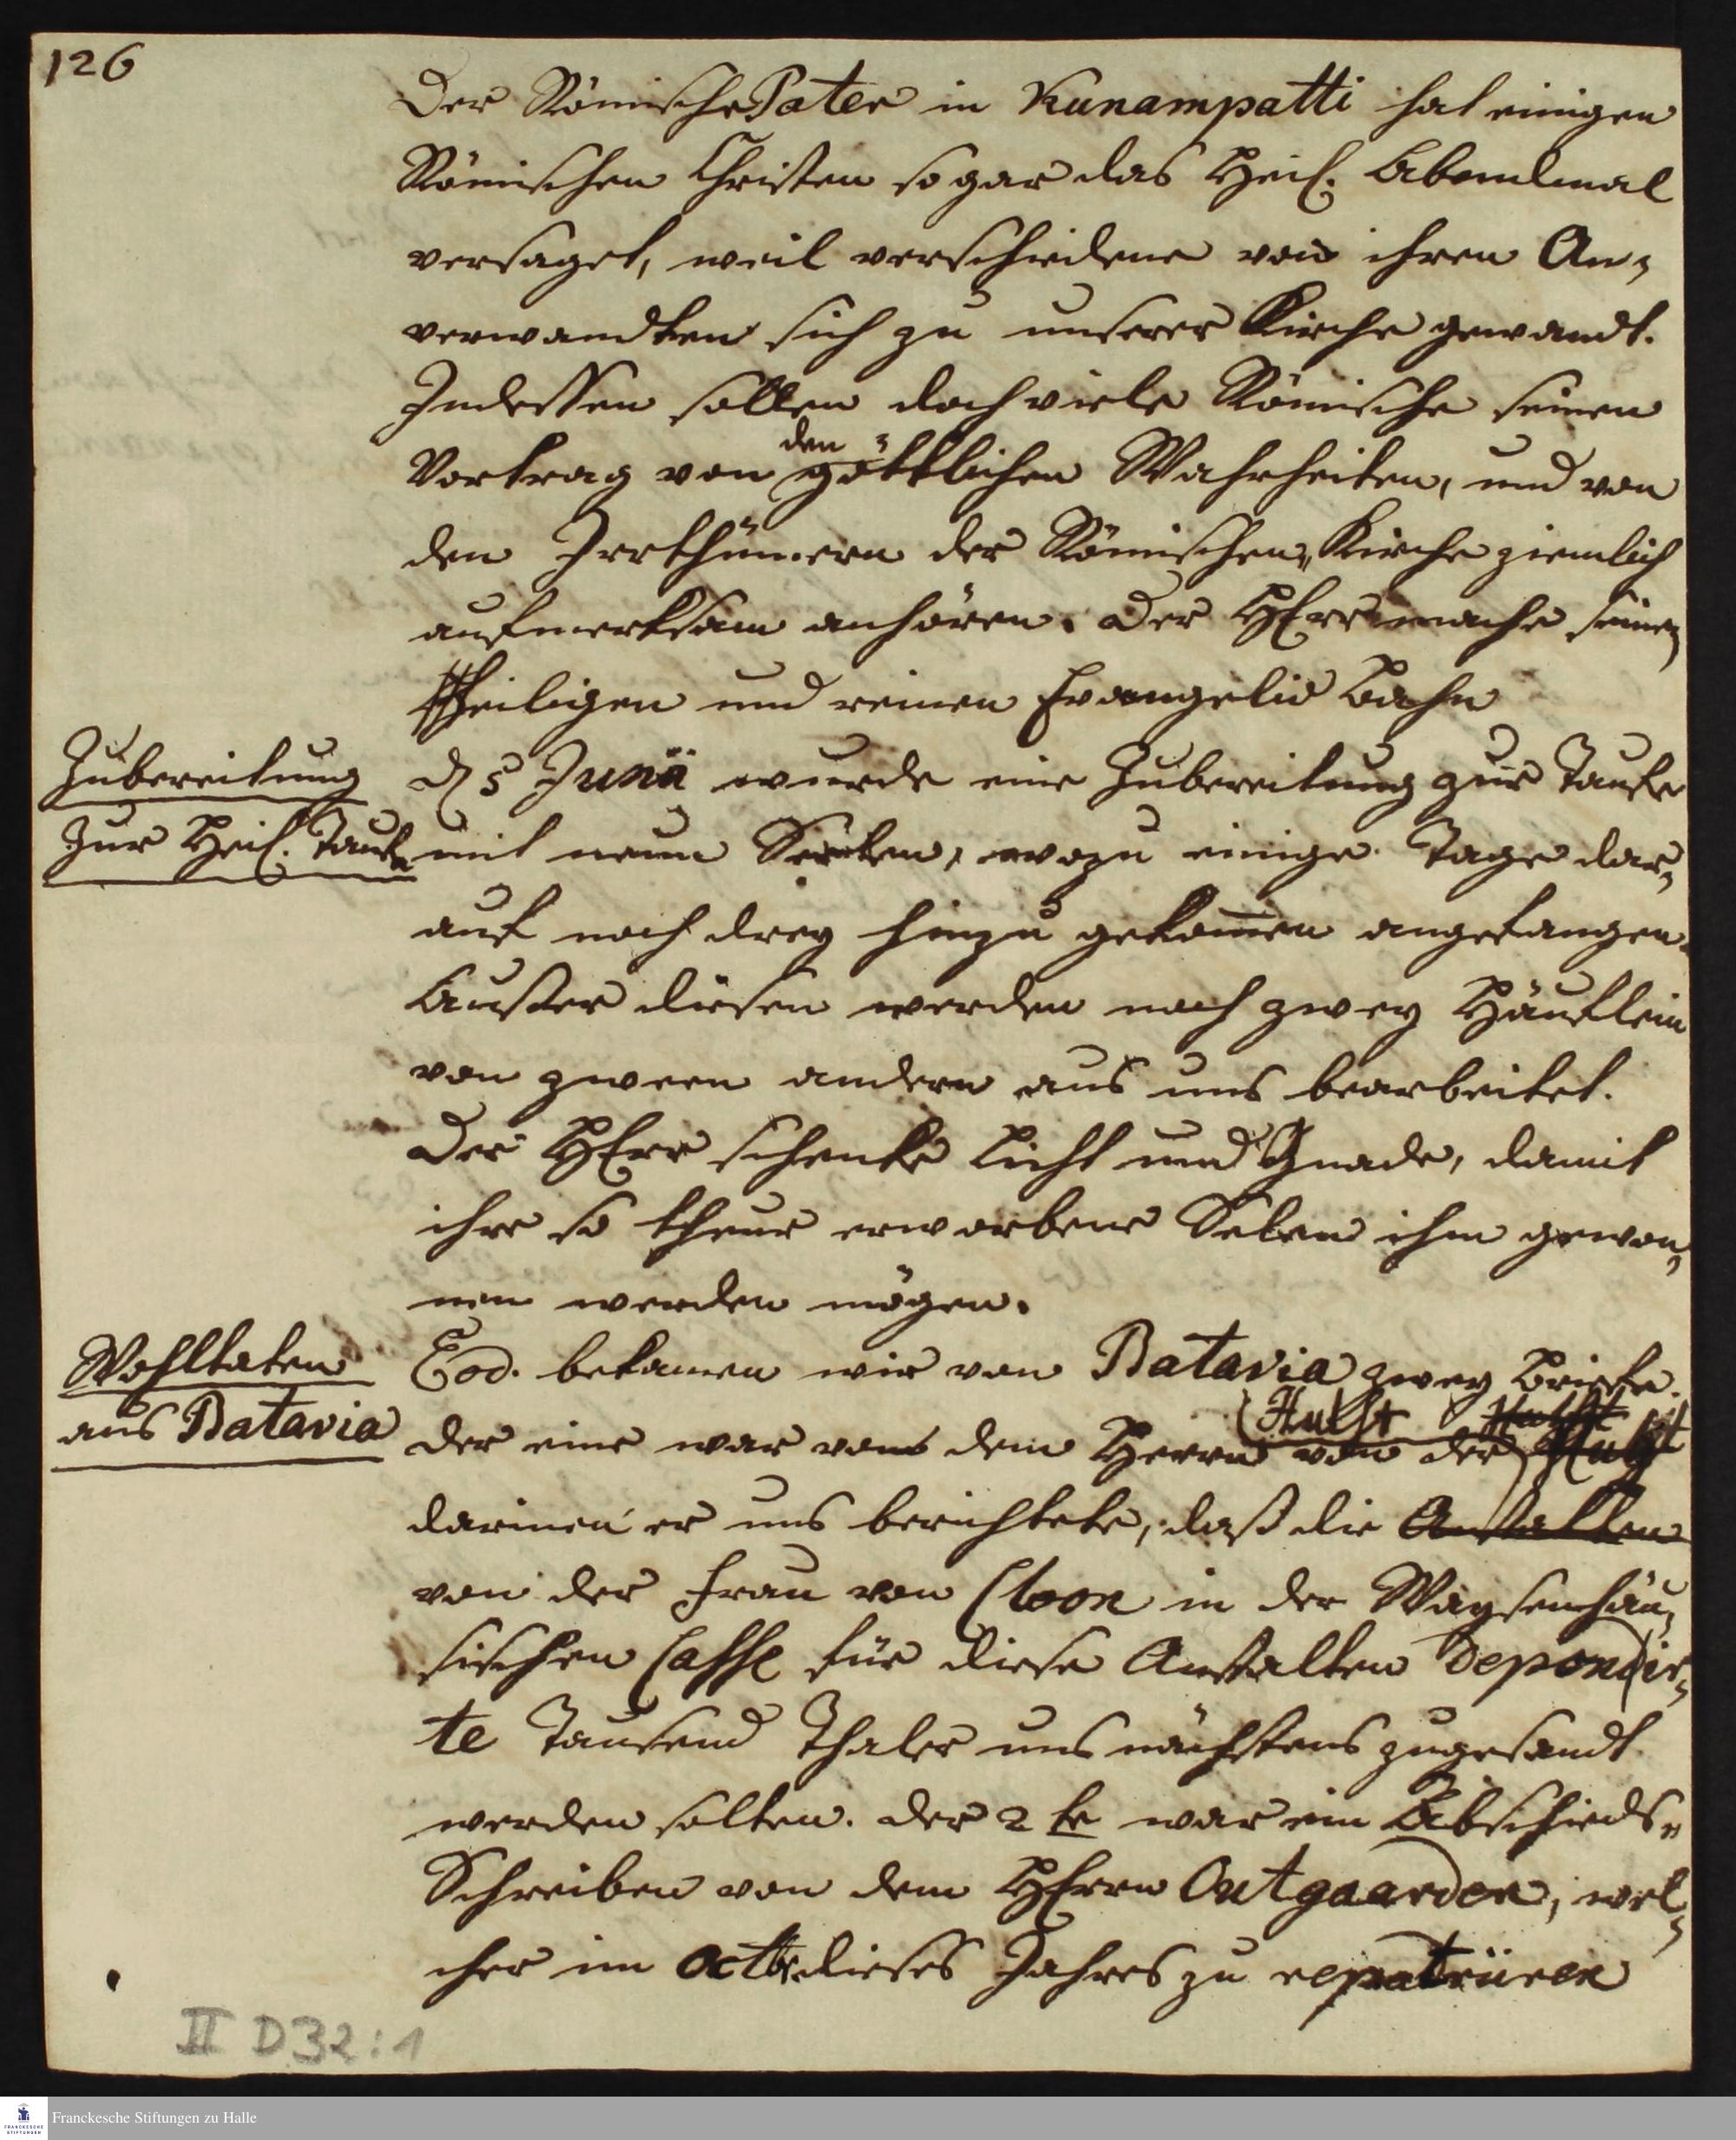 126
Der Römische Pater in Kunampatti hat einigen
Römischen Christen so gar das Heil. Abendmal
versaget, weil verschiedene von ihren An-
verwandten sich zu unserer Kirche gewandt.
Indessen sollen doch viele Römische seinen
den
Vortrag von göttlichen Wahrheiten, und von
den Irrthümern der Römischen Kirche ziemlich
aufmerksam anhören. Der HErr mache seinen
Heiligen und reinen Evangelio Bahn
Zubereitung
zur Heil. Taufe
d 5 Junii wurde eine Zubereitung zur Taufe
mit neun Seelen, wozu einige Tage dar-
auf noch drey hinzu gekom̅en angefangen.
Ausser diesen werden noch zwey Häuflein
von zween andern aus uns bearbeitet.
Der HErr schenke Licht und Gnade, damit
ihre so theur erworbene Selen ihm gewon-
nen werden mögen.
Wohltaten
aus Batavia
Eod. bekamen wir von Batavia zwey Briefe.
Hulst
der eine war von dem Herrn von der Hulst
darinen er uns berichtete, daß die Anstalten
von der Frau von Cloon in der Waysenhäu-
sischen Casse für diese Anstalten deponir-
te Tausend Thaler uns nächstens zugesandt
werden solten. der 2te war ein Abschieds-
Schreiben von dem HErrn Outgaarden, wel-
cher im Octbr. dieses Jahres zu repatriiren
II D32:1
Franckesche Stiftungen zu Halle
FRANCKESCHE
STIFTUNGEN